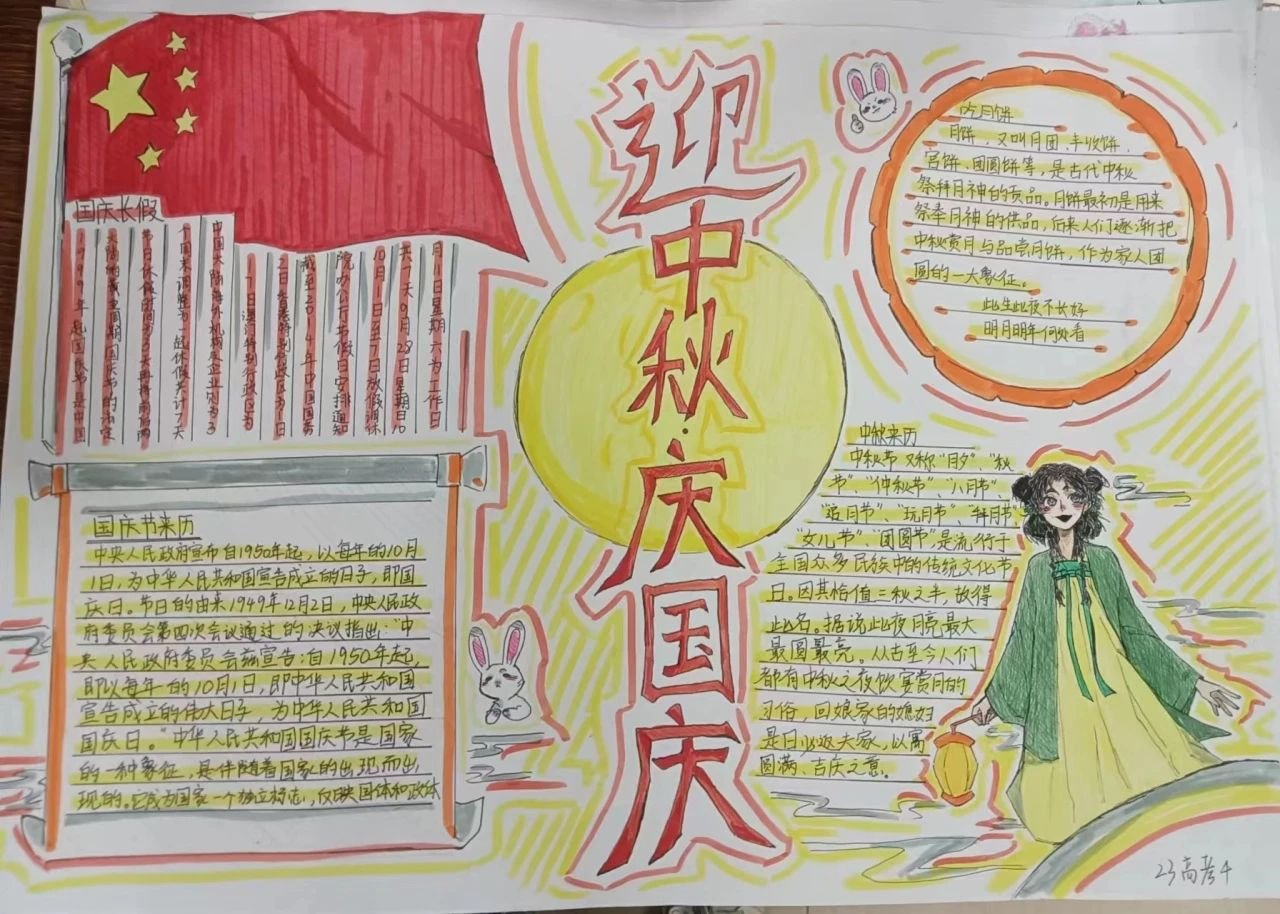 迎中秋·庆国庆
国庆长假
1999年起国庆节是中国
大陆的黄金周期国庆节的法定
节日休假时间为3天再将前后两
个周末调整为一起休假共计7天
中国大陆海外机构及企业则为3
-7日澳门特别行政区为
2日香港特别行政区为1日
截至2014年中国国务
院办公厅节假日安排通知
10月1日至7日放假调休
共7天9月28日星期日10
月11日星期六为工作日
国庆节来历
中央人民政府宣布自1950年起，以每年的10月
1日，为中华人民共和国宣告成立的日子，即国
庆日。节日的由来1949年12月2日，中央人民政
府委员会第四次会议通过的决议指出："中
央人民政府委员会兹宣告：自1950年起，
即以每年的10月1日，即中华人民共和国
宣告成立的伟大日子，为中华人民共和国
国庆日。"中华人民共和国国庆节是国家
的一种象征，是伴随着国家的出现而出
现的。它成为国家一个独立标志，反映国体和政体
吃月饼
月饼，又叫月团、丰收饼、
宫饼、团圆饼等，是古代中秋
祭拜月神的贡品。月饼最初是用来
祭奉月神的供品，后来人们逐渐把
中秋赏月与品尝月饼，作为家人团
圆的一大象征。
此生此夜不长好
明月明年何处看
中秋来历
中秋节又称"月夕"、"秋
节"、"仲秋节"、"八月节"
"追月节"、"玩月节"、"拜月节
"女儿节"、"团圆节"是流行于
全国众多民族中的传统文化节
日。因其恰值三秋之半，故得
此名，据说此夜月亮最大
最圆最亮。从古至今人们
都有中秋之夜饮宴赏月的
习俗，回娘家的媳妇
是日必返夫家，以寓
圆满、吉庆之意。
23高考4